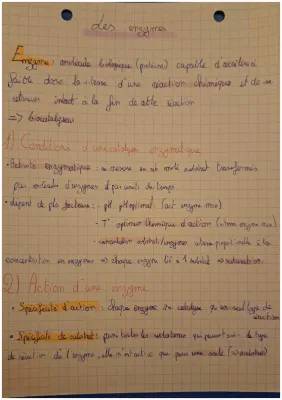 des enzymes
Enzyme : molécule biologique (protéine) capable d'accélérer à
faible dose la vitesse d'une réaction chimique et de se
retrouver intact à la fin de cette réaction
=> biocatalyseur
1) Conditions d'une catalyse enzymatique
Activité enzymatique : se mesure en nb moles substrat transformés
par d'enzymes et par unité de temps
dépend de plrs facteurs : pH pH optimal (act enzyme max)
- T° optimum thermique d'action (enzyme max)
- concentration substrat/enzymes vitesse à la
concentration en enzymes => chaque enzyme lié à 1 substrat => saturation
2) Action d'une enzyme
• Spécificité d'action : chaque enzyme ne catalyse qu'un seul type de
réaction
• Spécificité de substrat : parmi toutes les le type
de réaction de l'enzyme, elle n'est active que pour une seule (substrat)